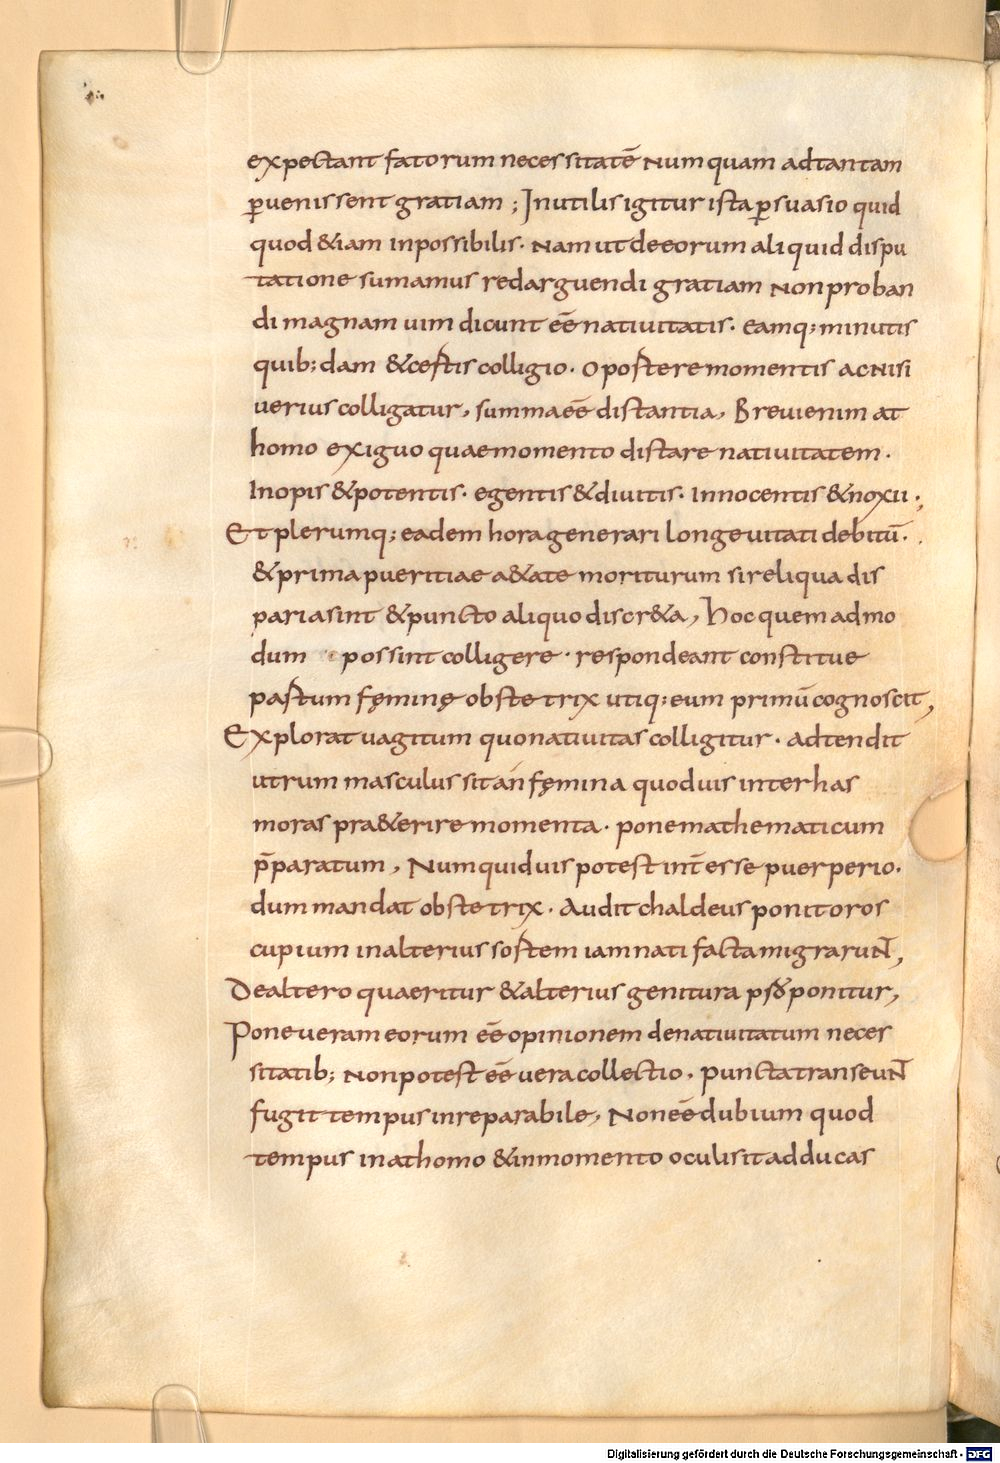 expectant fatorum necessitatē Numquam adtantam
p̄uenissent gratiam ; Inutilis igitur ista p̄suasio quid
quod &iam inpossibilis. Nam ut de eorum aliquid dispu
tatione sumamus redarguendi gratiam Non proban
di magnam uim dicunt eē natiuitatis. eamq; minutis
quib; dam &ceftis colligio. Oportere momentis ac Nisi
uerius colligatur, summa eē distantia, Breui enim at
homo exiguo quae momento distare natiuitatem.
Inopis & potentis. egentis & diuitis. Innocentis & noxii ;
Et plerumq; eadem hora generari longeuitati debitū.
& prima pueritiae a&ate moriturum si reliqua dis
paria sint & puncto aliquo discr&a, Hoc quem ad mo
dum possint colligere. respondeant constitue
pastum fęminę obstetrix utiq; eum primū cognoscit,
Explorat uagitum quo natiuitas colligitur. adtendit
utrum masculus sit an fęmina quod uis inter has
moras pra&erire momenta. pone mathematicum
p̄paratum, Numquid uis potest int̄ esse puerperio.
dum mandat obstetrix. Audit chaldeus ponit oros
cupium in alterius sostem iam nati facta migrarunt,
De altero quaeritur & alterius genitura ps&ponitur,
Pone ueram eorum eē opinionem de natiuitatum neces
sitatib; Non potest eē uera collectio. puncta transeunt
fugit tempus inreparabile, Non eē dubium quod
tempus in athomo & in momento oculi sit ad du cas
Digitalisierung gefördert durch die Deutsche Forschungsgemeinschaft - DFG